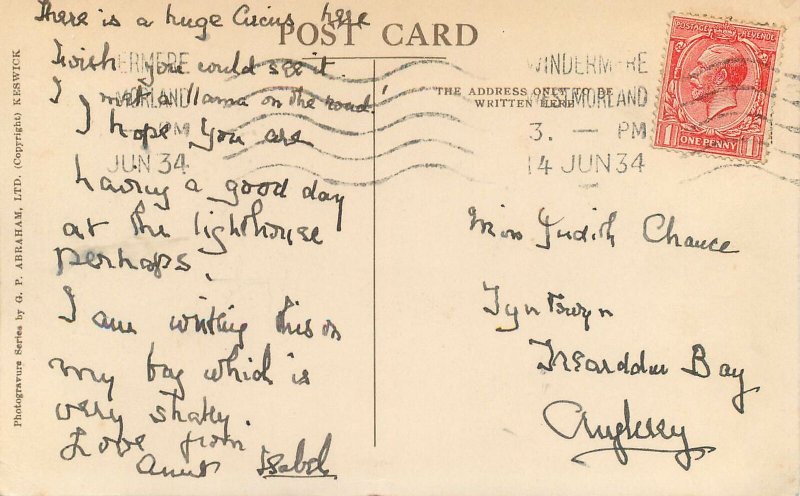 There is a huge Circus here
I wish you could see it.
I met a llama on the road!
I hope you are
having a good day
at the lighthouse
perhaps.
I am writing this on
my bag which is
very shaky.
Love from
Aunt Isabel
POST CARD
THE ADDRESS ONLY TO BE
WRITTEN HERE
ERMERE
MORLAND
PM
JUN 34
WINDERMERE
WESTMORLAND
3. — PM
14 JUN 34
POSTAGE REVENUE
1 ONE PENNY 1
Miss Judith Chance
Tyn Towyn
Trearddur Bay
Anglesey
Photogravure Series by G. P. ABRAHAM, LTD. (Copyright) KESWICK